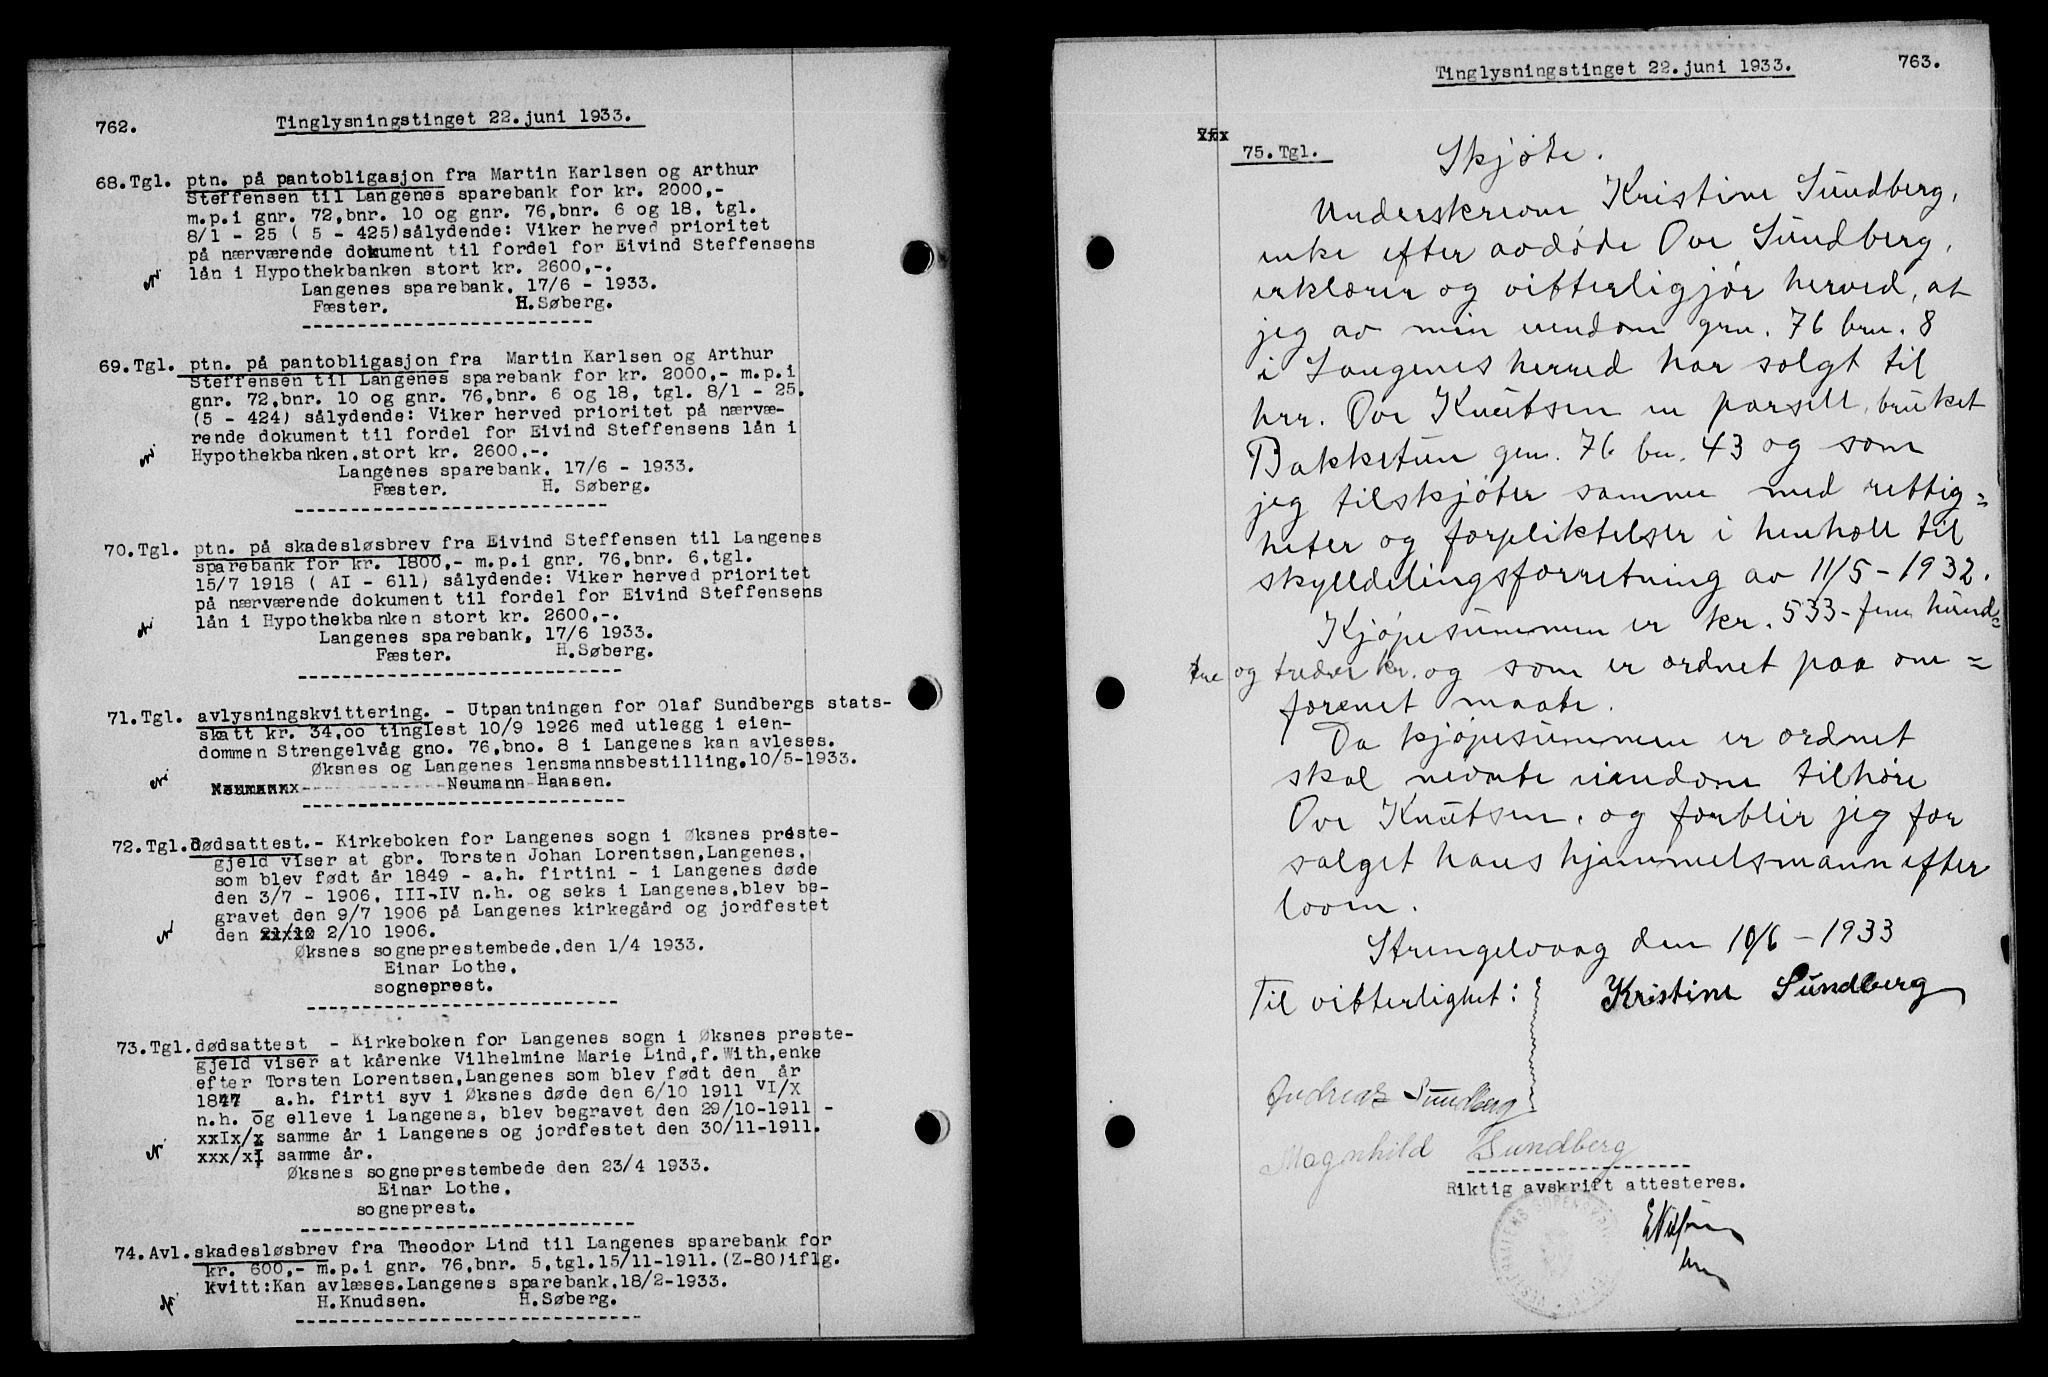 762.
Tinglysningstinget 22.juni 1933.
68.Tgl. ptn. på pantobligasjon fra Martin Karlsen og Arthur
Steffensen til Langenes sparebank for kr. 2000,-
m.p.i gnr. 72,bnr. 10 og gnr. 76,bnr. 6 og 18, tgl.
8/1 - 25 ( 5 - 425)sålydende: Viker herved prioritet
på nærværende dokument til fordel for Eivind Steffensens
lån i Hypothekbanken stort kr. 2600,-.
Langenes sparebank, 17/6 - 1933.
Fæster. H.Søberg.
69.Tgl. ptn. på pantobligasjon fra Martin Karlsen og Arthur
Steffensen til Langenes sparebank for kr. 2000,- m.p.i
gnr. 72,bnr. 10 og gnr. 76,bnr. 6 og 18, tgl. 8/1 - 25.
(5 - 424) sålydende: Viker herved prioritet på nærvæ-
rende dokument til fordel for Eivind Steffensens lån i
Hypothekbanken.stort kr. 2600.-.
Langenes sparebank, 17/6 - 1933.
Fæster. H. Søberg.
70.Tgl. ptn. på skadesløsbrev fra Eivind Steffensen til Langenes
sparebank for kr. 1800,- m.p.i gnr. 76,bnr. 6,tgl.
15/7 1918 ( AI - 611) sålydende: Viker herved prioritet
på nærværende dokument til fordel for Eivind Steffensens
lån i Hypothekbanken stort kr. 2600,-.
Langenes sparebank, 17/6 1933.
Fæster. H.Søberg.
71.Tgl. avlysningskvittering. - Utpantningen for Olaf Sundbergs stats-
skatt kr. 34,oo tinglest 10/9 1926 med utlegg i eien-
dommen Strengelvåg gno. 76,bno. 8 i Langenes kan avleses.
Øksnes og Langenes lensmannsbestilling.10/5-1933.
Neumann Hansen.
72.Tgl.dødsattest.- Kirkeboken for Langenes sogn i Øksnes preste-
gjeld viser at gbr. Torsten Johan Lorentsen,Langenes,
som blev født år 1849 - a.h. firtini - i Langenes døde
den 3/7 - 1906, III-IV n.h. og seks i Langenes,blev be-
gravet den 9/7 1906 på Langenes kirkegård og jordfestet
den 2/10 1906.
Øksnes sogneprestembede.den 1/4 1933.
Einar Lothe.
sogneprest.
73.Tgl.dødsattest - Kirkeboken for Langenes sogn i Øksnes preste-
gjeld viser at kårenke Vilhelmine Marie Lind,f.With,enke
efter Torsten Lorentsen,Langenes som blev født den år
1847 a.h. firti syv i Øksnes døde den 6/10 1911 VI/X
n.h. og elleve i Langenes, blev begravet den 29/10-1911 -
xxIx/x samme år i Langenes og jordfestet den 30/11-1911.
xxx/xI samme år.
Øksnes sogneprestembede den 23/4 1933.
Einar Lothe.
sogneprest.
74.Avl.skadesløsbrev fra Theodor Lind til Langenes sparebank for
kr. 600,- m.p.i gnr. 76,bnr. 5,tgl.15/11-1911.(Z-80)iflg.
kvitt:Kan avlæses.Langenes sparebank,18/2-1933.
H.Knudsen. H.Søberg.
Tinglysningstinget 22.juni 1933.
763.
75.Tgl.
Skjøte.
Underskrevne Kristine Sundberg,
enke efter avdøde Ove Sundberg,
erklærer og vitterligjør herved, at
jeg av min eiendom grn. 76 brn. 8
i Langenes herred har solgt til
hrr. Ove Knutsen en parsell, bruket
Bakketun grn. 76 bn. 43 og som
jeg tilskjøter samme med rettig=
heter og forpliktelser i henhold til
skylddelingsforretning av 11/5-1932.
Kjøpesummen er kr. 533- fem hund=
tre og tredve kr. og som er ordnet paa om=
forenet maate.
Da kjøpesummen er ordnet
skal nevnte eiendom tilhøre
Ove Knutsen, og forblir jeg for
salget hans hjemmelsmann efter
loven.
Strengelvaag den 10/6 - 1933
Til vitterlighet: Kristine Sundberg
Andreas Sundberg
Magnhild Sundberg
Riktig avskrift attesteres.